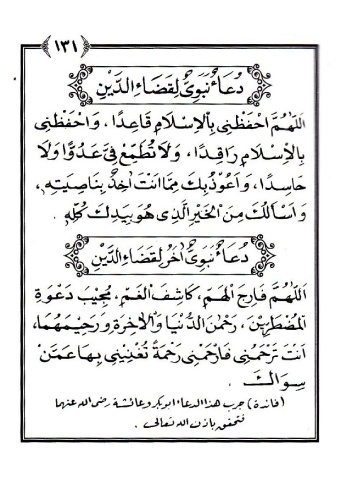 ١٣١
دُعَاءٌ نَبَوِيٌّ لِقَضَاءِ الدَّيْنِ
اَللّٰهُمَّ احْفَظْنِى بِالْاِسْلَامِ قَاعِدًا ، وَاحْفَظْنِى
بِالْاِسْلَامِ رَاقِدًا ، وَلَا تُطَمِّعْ فِيَّ عَدُوًّا وَلَا
حَاسِدًا ، وَاَعُوْذُ بِكَ مِمَّا اَنْتَ اٰخِذٌ بِنَاصِيَتِهِ ،
وَاَسْاَلُكَ مِنَ الْخَيْرِ الَّذِى هُوَ بِيَدِكَ كُلِّهِ .
دُعَاءٌ نَبَوِيٌّ اٰخَرُ لِقَضَاءِ الدَّيْنِ
اَللّٰهُمَّ فَارِجَ الْهَمِّ ، كَاشِفَ الْغَمِّ ، مُجِيْبَ دَعْوَةِ
الْمُضْطَرِّيْنَ ، رَحْمٰنَ الدُّنْيَا وَالْاٰخِرَةِ وَرَحِيْمَهُمَا ،
اَنْتَ تَرْحَمُنِى فَارْحَمْنِى رَحْمَةً تُغْنِيْنِى بِهَا عَمَّنْ
سِوَاكَ .
(فائدة) جرب هذا الدعاء ابوبكر وعائشة رضى الله عنهما
فتحقق باذن الله تعالى .